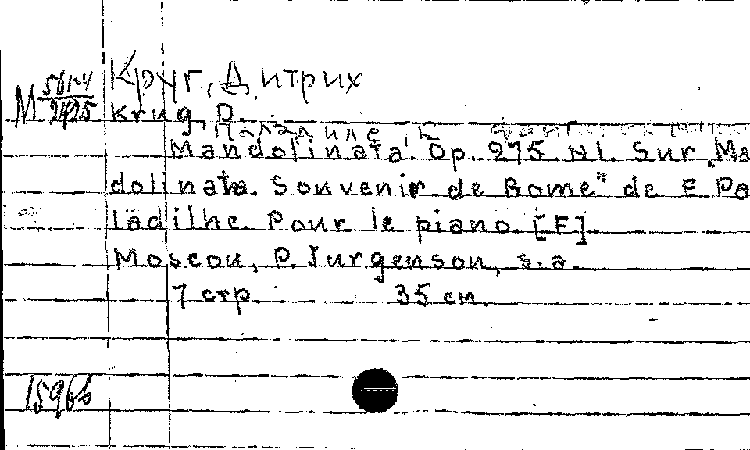 Круг, Дитрих
М
Krug, D.
Mandolinata. Op. 275 N1. Sur „Ma
dolinata. Souvenir de Rome" de E. Pa
ladilhe. Pour le piano. [F]
Moscou, P. Jurgenson, s.a.
7 стр. 35 см.